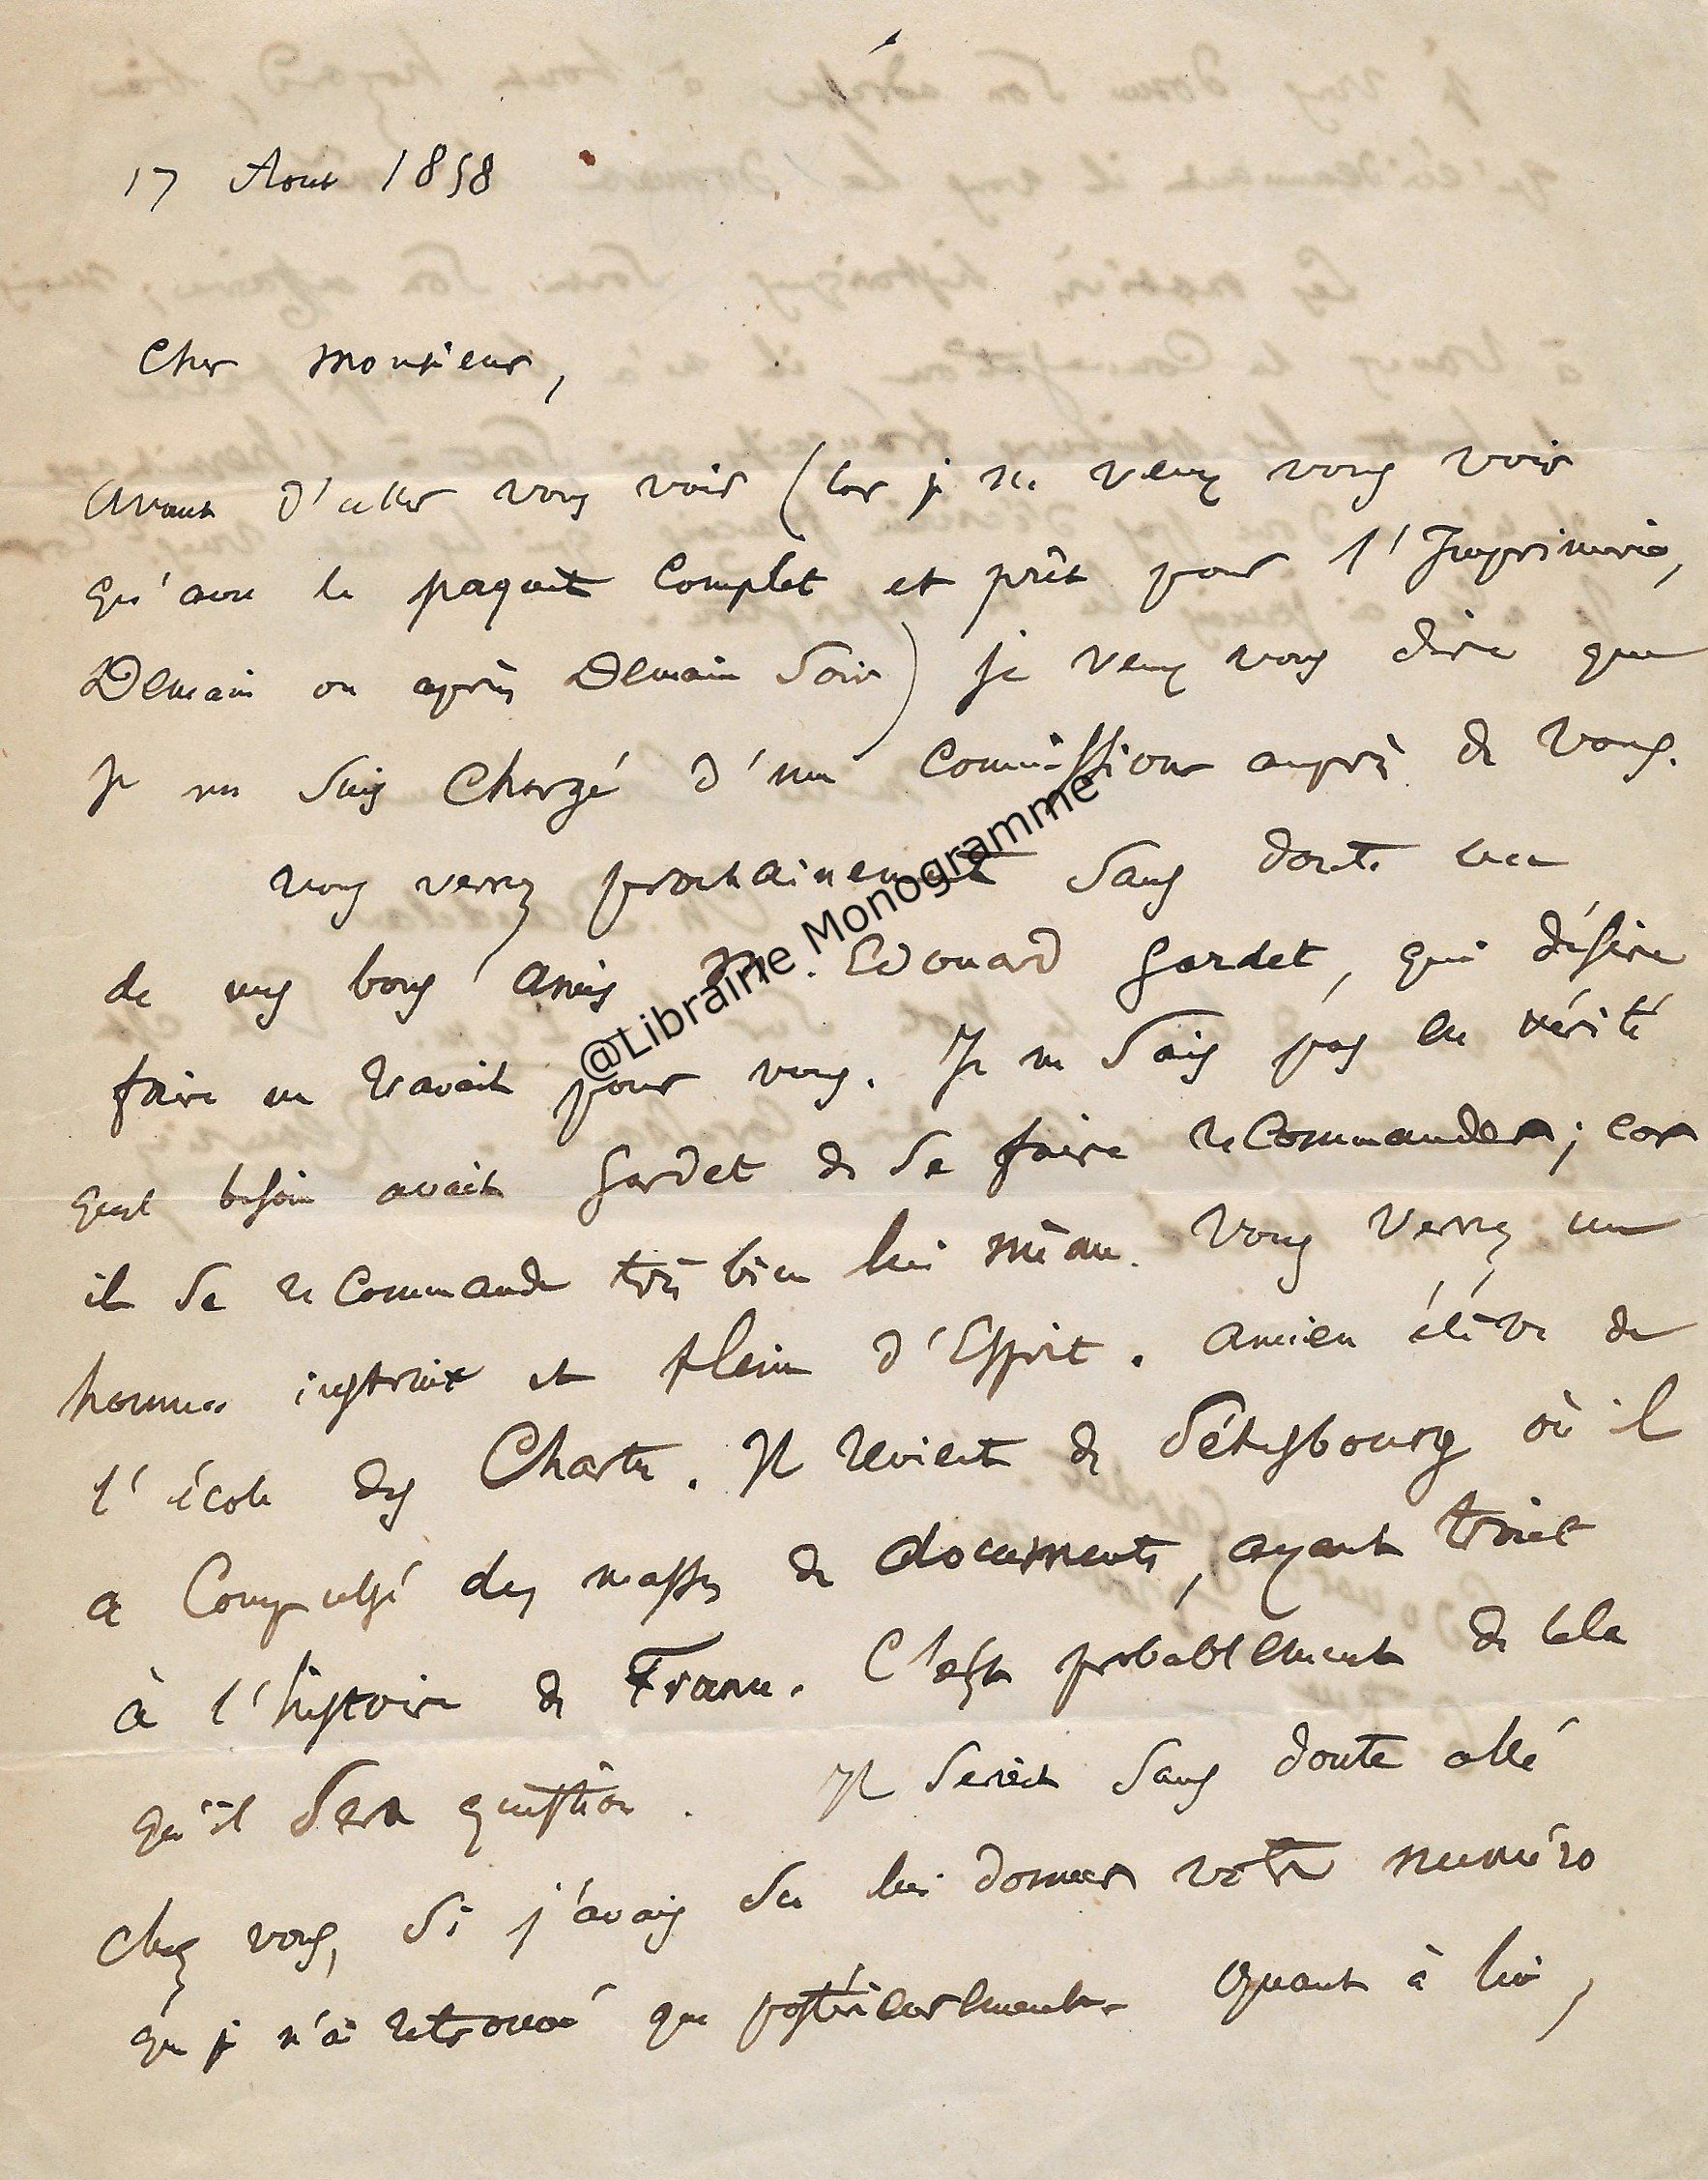 17 Aout 1858
Cher Monsieur,
Avant d'aller vous voir (car je ne veux vous voir
qu'avec le paquet complet et prêt pour l'Imprimerie,
Demain ou après Demain Soir) je veux vous dire que
je me suis chargé d'une commission auprès de vous.
Vous verrez prochainement sans doute un
de mes bons amis M. Edouard Gardet, qui désire
faire un travail pour vous. Je ne sais pas en vérité
quel besoin avait Gardet de se faire recommander; car
il se recommande très bien lui même. Vous verrez un
homme instruit et plein d'Esprit. Ancien élève de
l'école des Chartes. Il revient de Pétersbourg où il
a compulsé des masses de documents, ayant trait
à l'histoire de France. C'est probablement de cela
qu'il sera question. Il serait sans doute allé
chez vous, si j'avais su lui donner votre numéro
que je n'ai retrouvé que postérieurement. Quant à lui,
@Librairie Monogramme